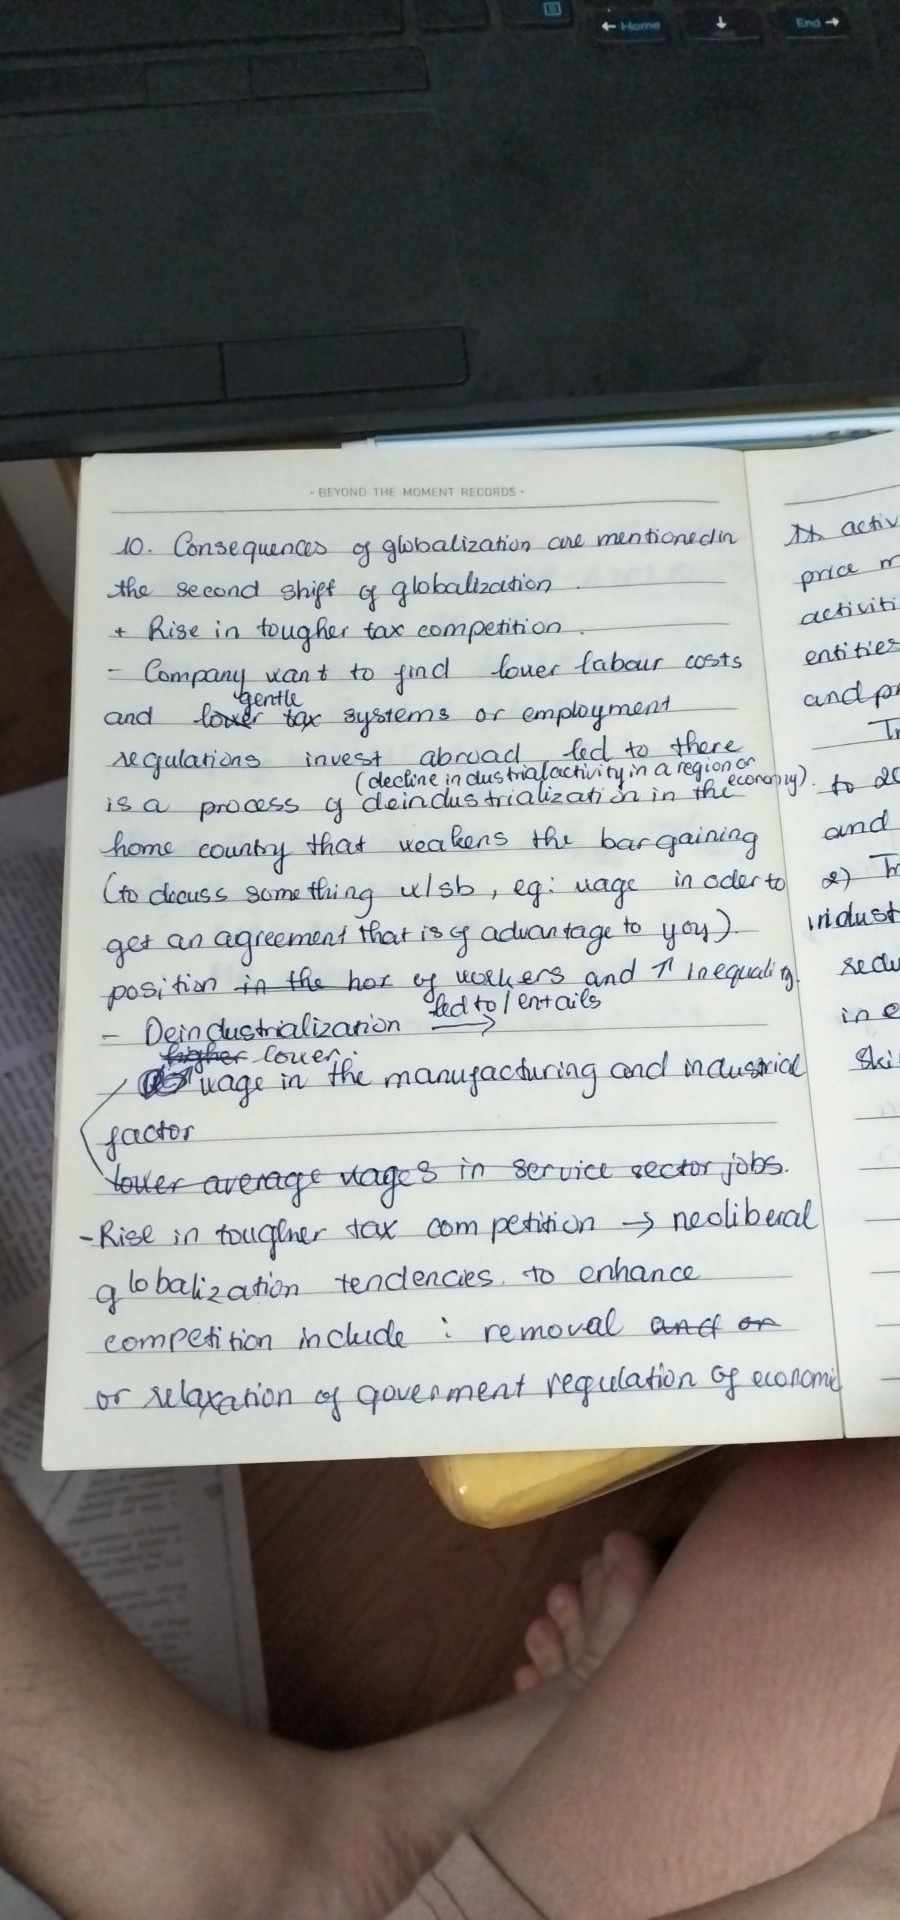 ← Home
↓
End →
- BEYOND THE MOMENT RECORDS -
10. Consequences of globalization are mentioned in
the second shift of globalization.
+ Rise in tougher tax competition.
- Company want to find lower labour costs
gentle
and lower tax systems or employment
regulations invest abroad led to there
(decline industrial activity in a region or economy).
is a process of deindustrialization in the
home country that weakens the bargaining
(to dicuss something w/sb, eg: wage in oder to
get an agreement that is of advantage to you)
position in the hox of workers and ↑ inequality.
led to / entails
- Deindustrialization →
higher lower
wage in the manufacturing and industrial
factor
lower average wages in service sector jobs.
- Rise in tougher tax competition → neoliberal
globalization tendencies to enhance
competition include : removal and or
or relaxation of goverment regulation of economic
activ
price m
activiti
entities
and pr
to 20
and
2) Tr
indust
redu
in e
ski